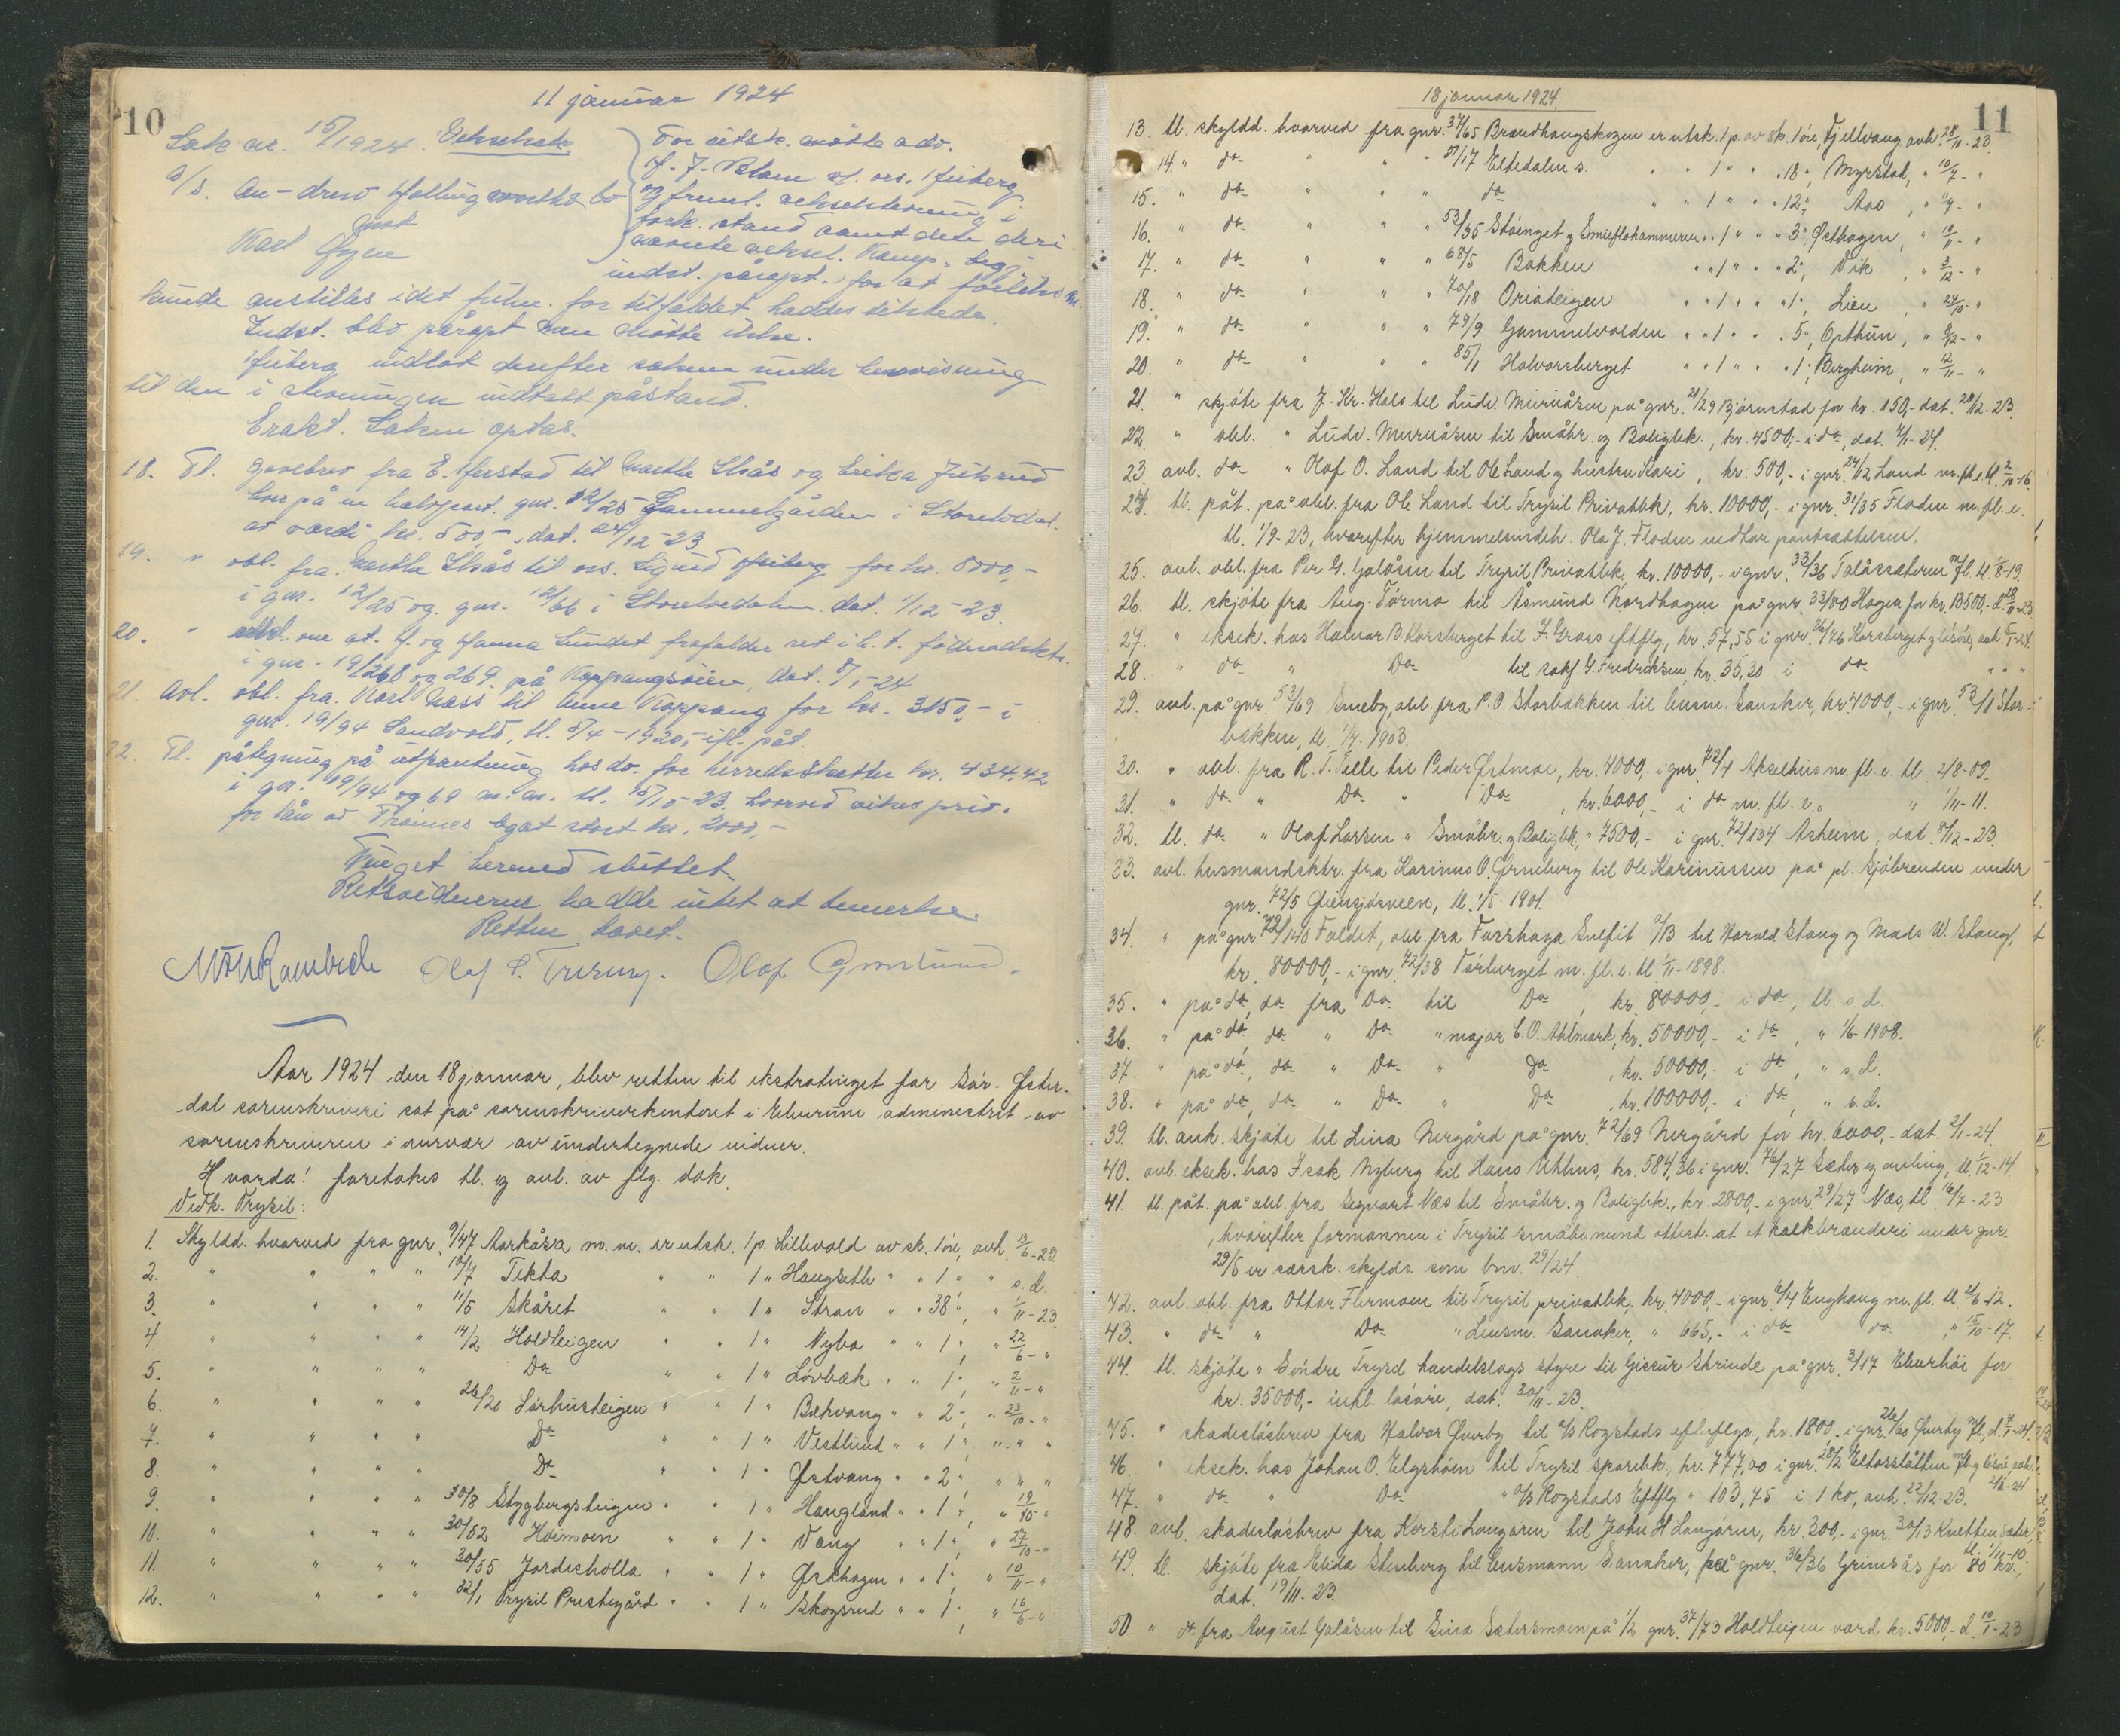 10
11 januar 1924
Sak nr. 15/1924. Vekselsak.
A/S. An-drew Hollingworths bo
mot
Karl Øgne
For citsk. møtte adv.
og freml. vekselstevning i
fork. stand samt den deri
nævnte veksel.
indst. påropt. for at forlik
kunde anstilles idet fuldm. for tilfældet haddes tilstede.
Indst. blev påropt men møtte ikke.
Friberg indlot derefter saken under henvisning
til den i stevningen indtatt påstand.
Erakt. Saken optas.
18. Tl. gavebrev fra E. til Marthe Skås og Erika
hver på en halvpart. gnr. 12/25 Gammelgården i Storelvdal.
av værdi kr. 500,- dat. 24/12-23
19. " obl. fra Marthe Skås til ors. Sigurd Friberg for kr. 5000,-
i gnr. 12/25 og gnr. 12/66 i Storelvedalen dat. 1/12-23.
20. " om at. H. og Hanna Sundet frafalder ret i h. t. føderådsktr.
i gnr. 19/268 og 269 på Koppangsøien, dat. 8/1-24
21. Avl. obl. fra Karl Næss til Anne Koppang for kr. 3150,- i
gnr. 19/94 Sandvold, tl. 8/4-1920, ifl. påt.
22. Tl. påtegning på utpantning hos do. for herredsskatter kr. 434.42
i gnr. 19/94 og 69 m. m. tl. 15/10-23. hvorved vikes prio.
for lån av legat stort kr. 2000,-
Tinget hermed sluttet.
Retsvidnerne hadde intet at bemerke.
Retten hævet.
Olaf Grønlund.
Aar 1924 den 18 januar, blev retten til ekstratinget for Sør-Øster-
dal sorenskriveri sat på sorenskriverkontoret i Elverum administrert av
sorenskriveren i nærvær av undertegnede vidner.
Hvorda! foretokes tl. og avl. av flg. dok.
Vedk. Trysil:
1. Skyldd. hvorved fra gnr. 9/47 Aarkåsa m. m. er utsk. 1 p. Lillevold av sk. 1 øre, avh. 13/6-23.
2. " " " " 10/7 Tekta " " 1 " Haugseth " " 1 " " s. d.
3. " " " " 11/5 Skåret " " 1 " Stran " " 38 ", " 1/11-23.
4. " " " " 14/2 Holdteigen " " 1 " Nybo " " 1, " 22/6- "
5. " " " " Do " " 1 " Løvbæk " " 1, " 2/11- "
6. " " " " 26/20 Sørhusteigen " " 1 " Bækvang " " 2, " 23/10- "
7. " " " " Do " " 1 " Vestlund " " 1 " " " "
8. " " " " Do " " 1 " Østvang " " 2, " " "
9. " " " " 30/8 Stygbergsteigen " " 1 " Haugland " " 1, " 19/10 "
10. " " " " 30/52 Heimoen " " 1 " Vang " " 1, " 27/10- "
11. " " " " 30/55 Jordetholla " " 1 " Østhagen " " 1, " 10/11- "
12. " " " " 32/1 Trysil Prestegård " " 1 " Skogsrud " " 1, " 16/6- "
11
18 januar 1924.
13. tl. skyldd. hvorved fra gnr. 34/65 Brændhaugskogen er utsk. 1 p. av sk. 1 øre, Fjellvang, avh. 28/11-23.
14. " do " " " 51/17 Eltedalen s. " " 1 " " 18, Myrstad, " 10/7- "
15. " do " " " do " " 1 " " 12, Aas, " 1/7- "
16. " do " " " 53/35 Støenget og Smiefløhammeren " " 1 " " 3, Østhagen, " 10/11- "
17. " do " " " 68/5 Bakken " " 1 " " 2, Vik, " 3/12- "
18. " do " " " 70/18 Oriateigen " " 1 " " 1, Lien, " 24/10- "
19. " do " " " 79/9 Gammelvolden " " 1 " " 5, Opthun, " 8/12- "
20. " do " " " 85/1 Halvorsberget " " 1 " " 1, Bergheim, " 12/11- "
21. " skjøte fra J. Kr. Hals til Ludv. Muruåsen på gnr. 21/29 Bjørnstad for kr. 150,- dat. 28/12-23.
22. " obl. " Ludv. Muruåsen til Småbr. og Boligbk., kr. 4500,- i do, dat. 4/1-24.
23. avl. do " Olaf O. Land til Ole Land og hustru Kari, kr. 500,- i gnr. 24/12 Land m. fl. e. tl. 2/10-16.
24. tl. påt. på obl. fra Ole Land til Trysil Privatbk, kr. 10000,- i gnr. 31/35 Floden m. fl. e.
tl. 1/9-23, hvorefter hjemmelsindeh. Ola J. Floden vedtar pantsættelsen.
25. avl. obl. fra Per G. Galåsen til Trysil Privatbk, kr. 10000,- i gnr. 33/36 Galåssæteren m fl. tl. 1/8-19.
26. tl. skjøte fra Aug. Tørmo til Asmund Nordhagen på gnr. 33/80 Hagen for kr. 13500,- d. 28/11-23
27. " eksek. hos Halvor B. Korsberget til J. Graas eftflg., kr. 57,55 i gnr. 36/76 Korsberget og løsøre, avh. 5/1-24.
28 " do " Do til sakf. G. Fredriksen, kr. 35,20 i do " " "
29. avl. på gnr. 53/69 Sneby, obl. fra P. O. Storbækken til lensm. Sanaker, kr. 4000,- i gnr. 53/1 Stor-
bækken, tl. 1/4-1903.
30. " obl. fra R. T. Telle til Peder Østmoe, kr. 4000,- i gnr. 72/4 Akselhus m. fl. e. tl. 2/8-09.
31. " do " Do " Do, kr. 6000,- i do m. fl. e. " 1/11-11.
32. tl. do " Olaf Larsen " Småbr. og Boligbk, " 7500,- i gnr. 72/134 Asheim, dat. 8/12-23.
33. avl. husmandsktr. fra Karinus O. Grneberg til Ole Karinussen på pl. Sjøbrenden under
gnr. 72/5 Grensjøsveen, tl. 1/5-1901.
34. " på gnr. 72/140 Faldet, obl. fra Fosshaga Sulfit A/B til Harald Stang og Mads W. Stang,
kr. 80000,- i gnr. 72/38 Tørberget m. fl. e. tl. 1/11-1898.
35. " på do, do fra Do til Do, kr. 80000,- i do, tl. s. d.
36. " på do, do " Do " major C. O. Ahlmark, kr. 50000,- i do, " 1/6-1908.
37. " på do, do " Do " Do, kr. 50000,- i do, " s. d.
38. " på do, do " Do " Do, kr. 100000,- i do, " s. d.
39. tl. auk. skjøte til Lina Nergård på gnr. 72/69 Nergård for kr. 6000,- dat. 2/1-24.
40. avl. eksek. hos Isak Nyberg til Hans Uthus, kr. 584,36 i gnr. 76/27 Sæter og avling, tl. 1/12-14.
41. tl. påt. på obl. fra Segvart Næs til Småbr. og Boligbk., kr. 2800,- i gnr. 29/27 Næs, tl. 16/7-23
, hvorefter formannen i Trysil småbr.nemnd attest. at et kalkbrænderi under gnr.
29/5 er særsk. skylds. som bnr. 29/24.
42. avl. obl. fra Ottar Flermoen til Trysil privatbk, kr. 4000,- i gnr. 6/4 Enghaug m. fl. tl. 21/6-12.
43. " do " Do " Lensm. Sanaker, " 665,- i do do, " 15/10-17.
44. tl. skjøte " Søndre Trysil handelslags styre til Gissur Skrinde på gnr. 3/17 Elverhøi for
kr. 35000,- inkl. løsøre, dat. 30/11-23.
45. " skadesløsbrev fra Halvor Qverby til A/S Rogstads efterflgr., kr. 1800,- i gnr. 26/60 Qverby m fl., d. 7/1-24.
46. " eksek. hos Johan O. Elgshøen til Trysil sparebk., kr. 777,00 i gnr. 28/2 Eltosslåtten m fl. og løsøre, avh.
47. " do " Do " A/S Rogstads Eftflg " 103,75 i 1 ko, avh. 22/12-23.
48. avl. skadesløsbrev fra Kersti Langåsen til John H Langåsen, kr. 300,- i gnr. 30/13 Knetten sæter, tl. 1/11-10.
49. tl. skjøte fra Elida Stenberg til lensmann Sanaker, på gnr. 36/36 Grimsås for 80 kr.,
dat. 19/11-23.
50. " do fra August Galåsen til Sina Sætersmoen på 1/2 gnr. 37/73 Holdteigen værd kr. 5000,- d. 10/1-23.